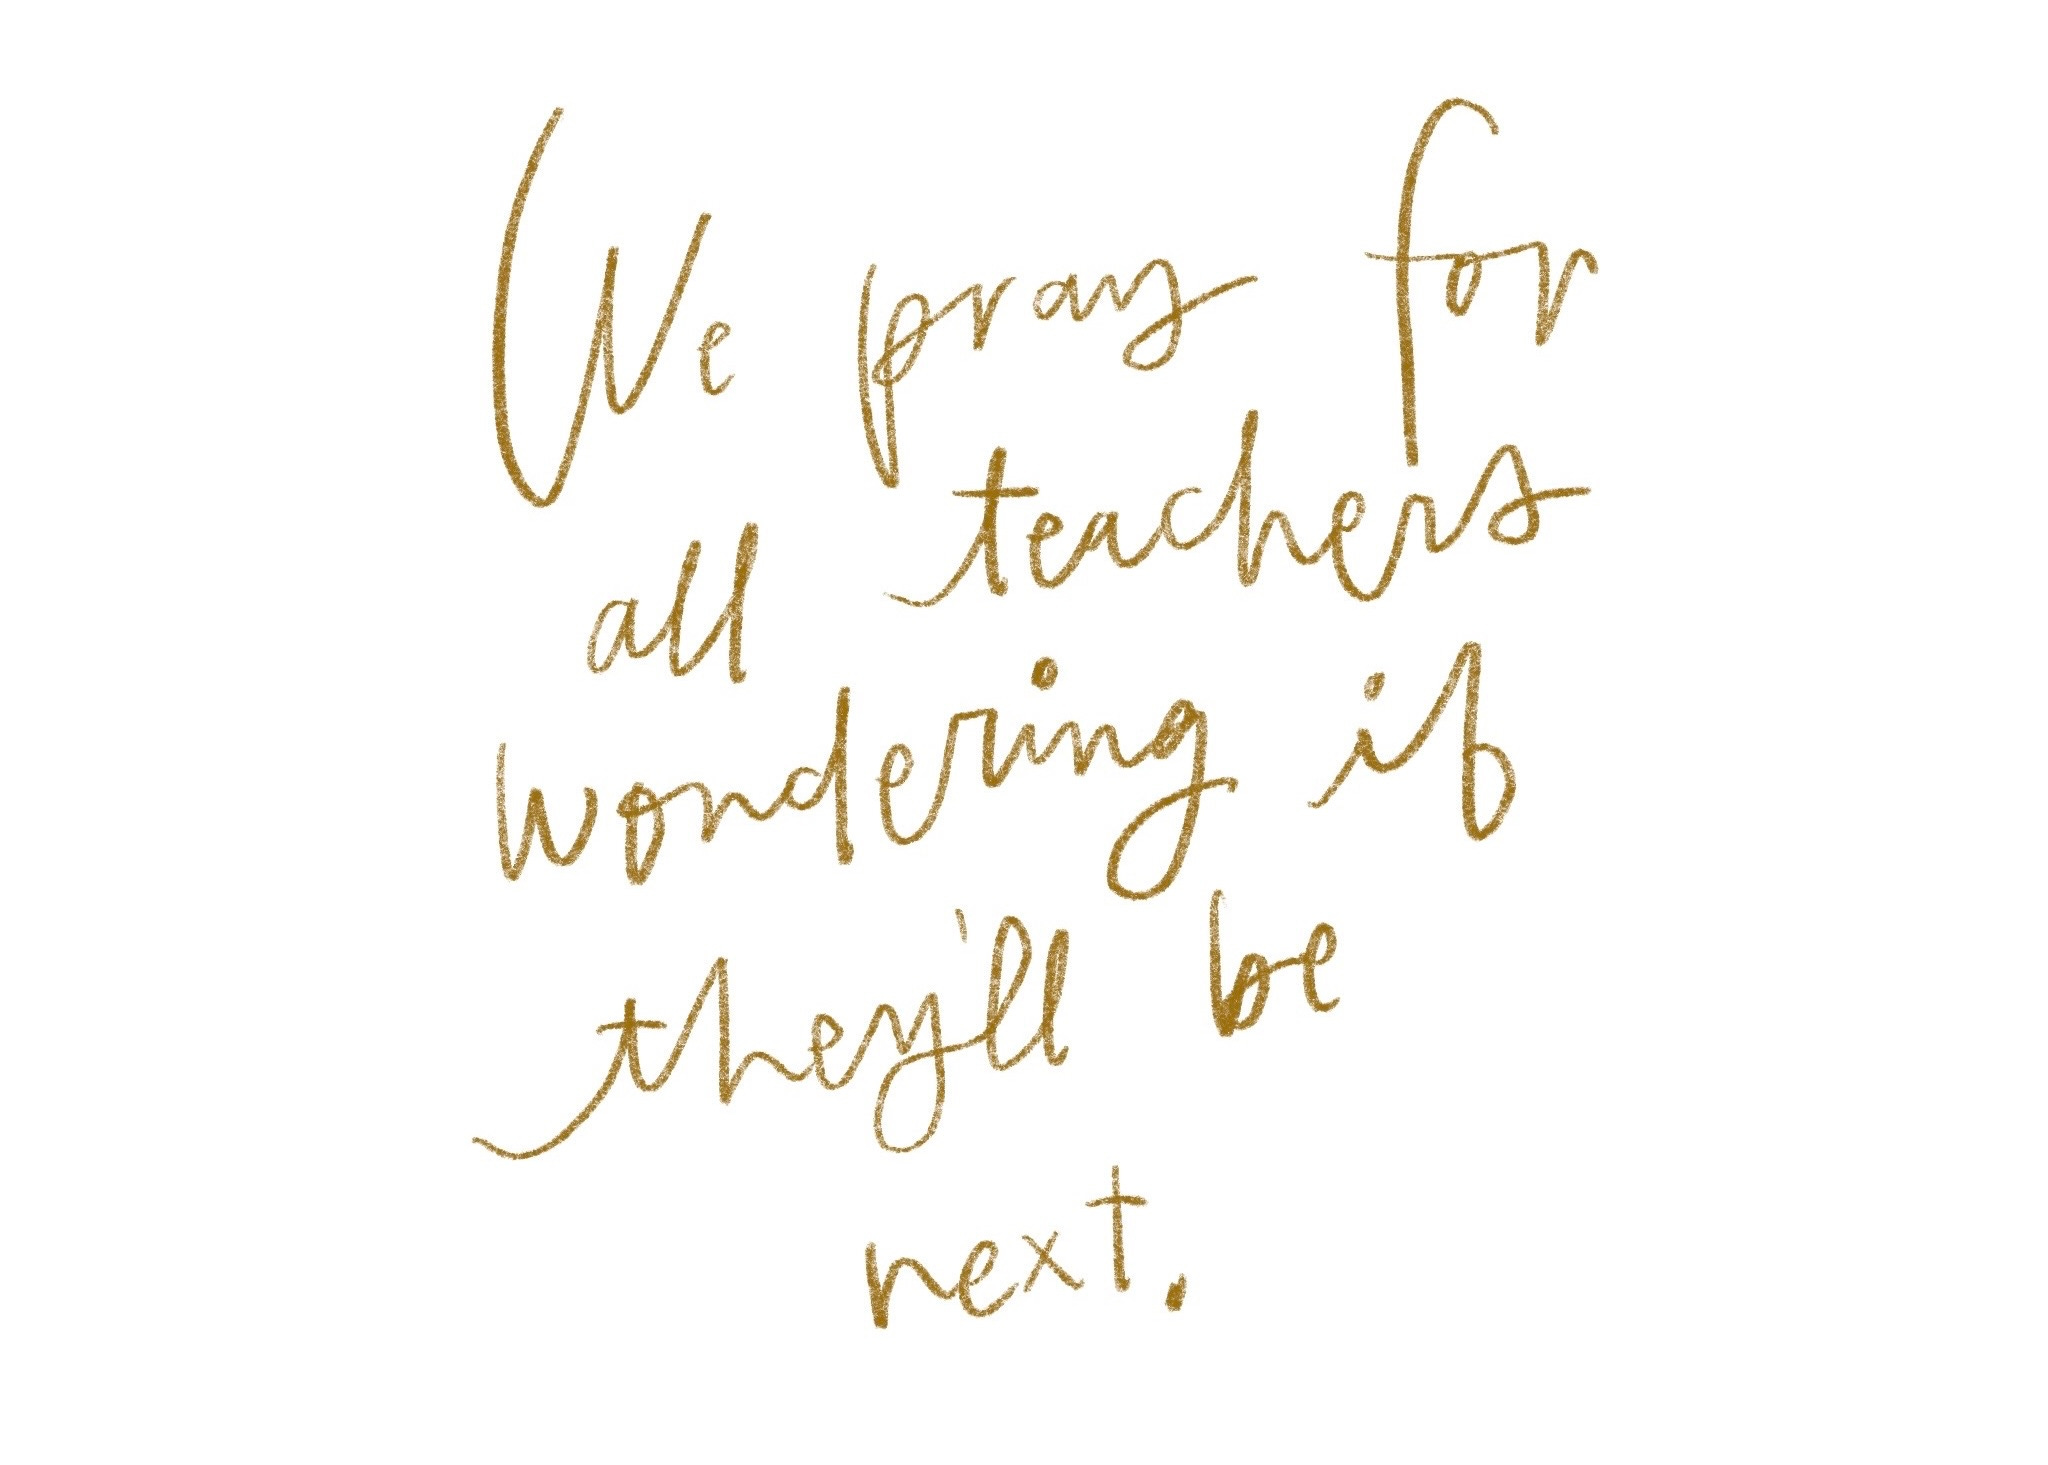 We pray for
all teachers
wondering if
they'll be
next.